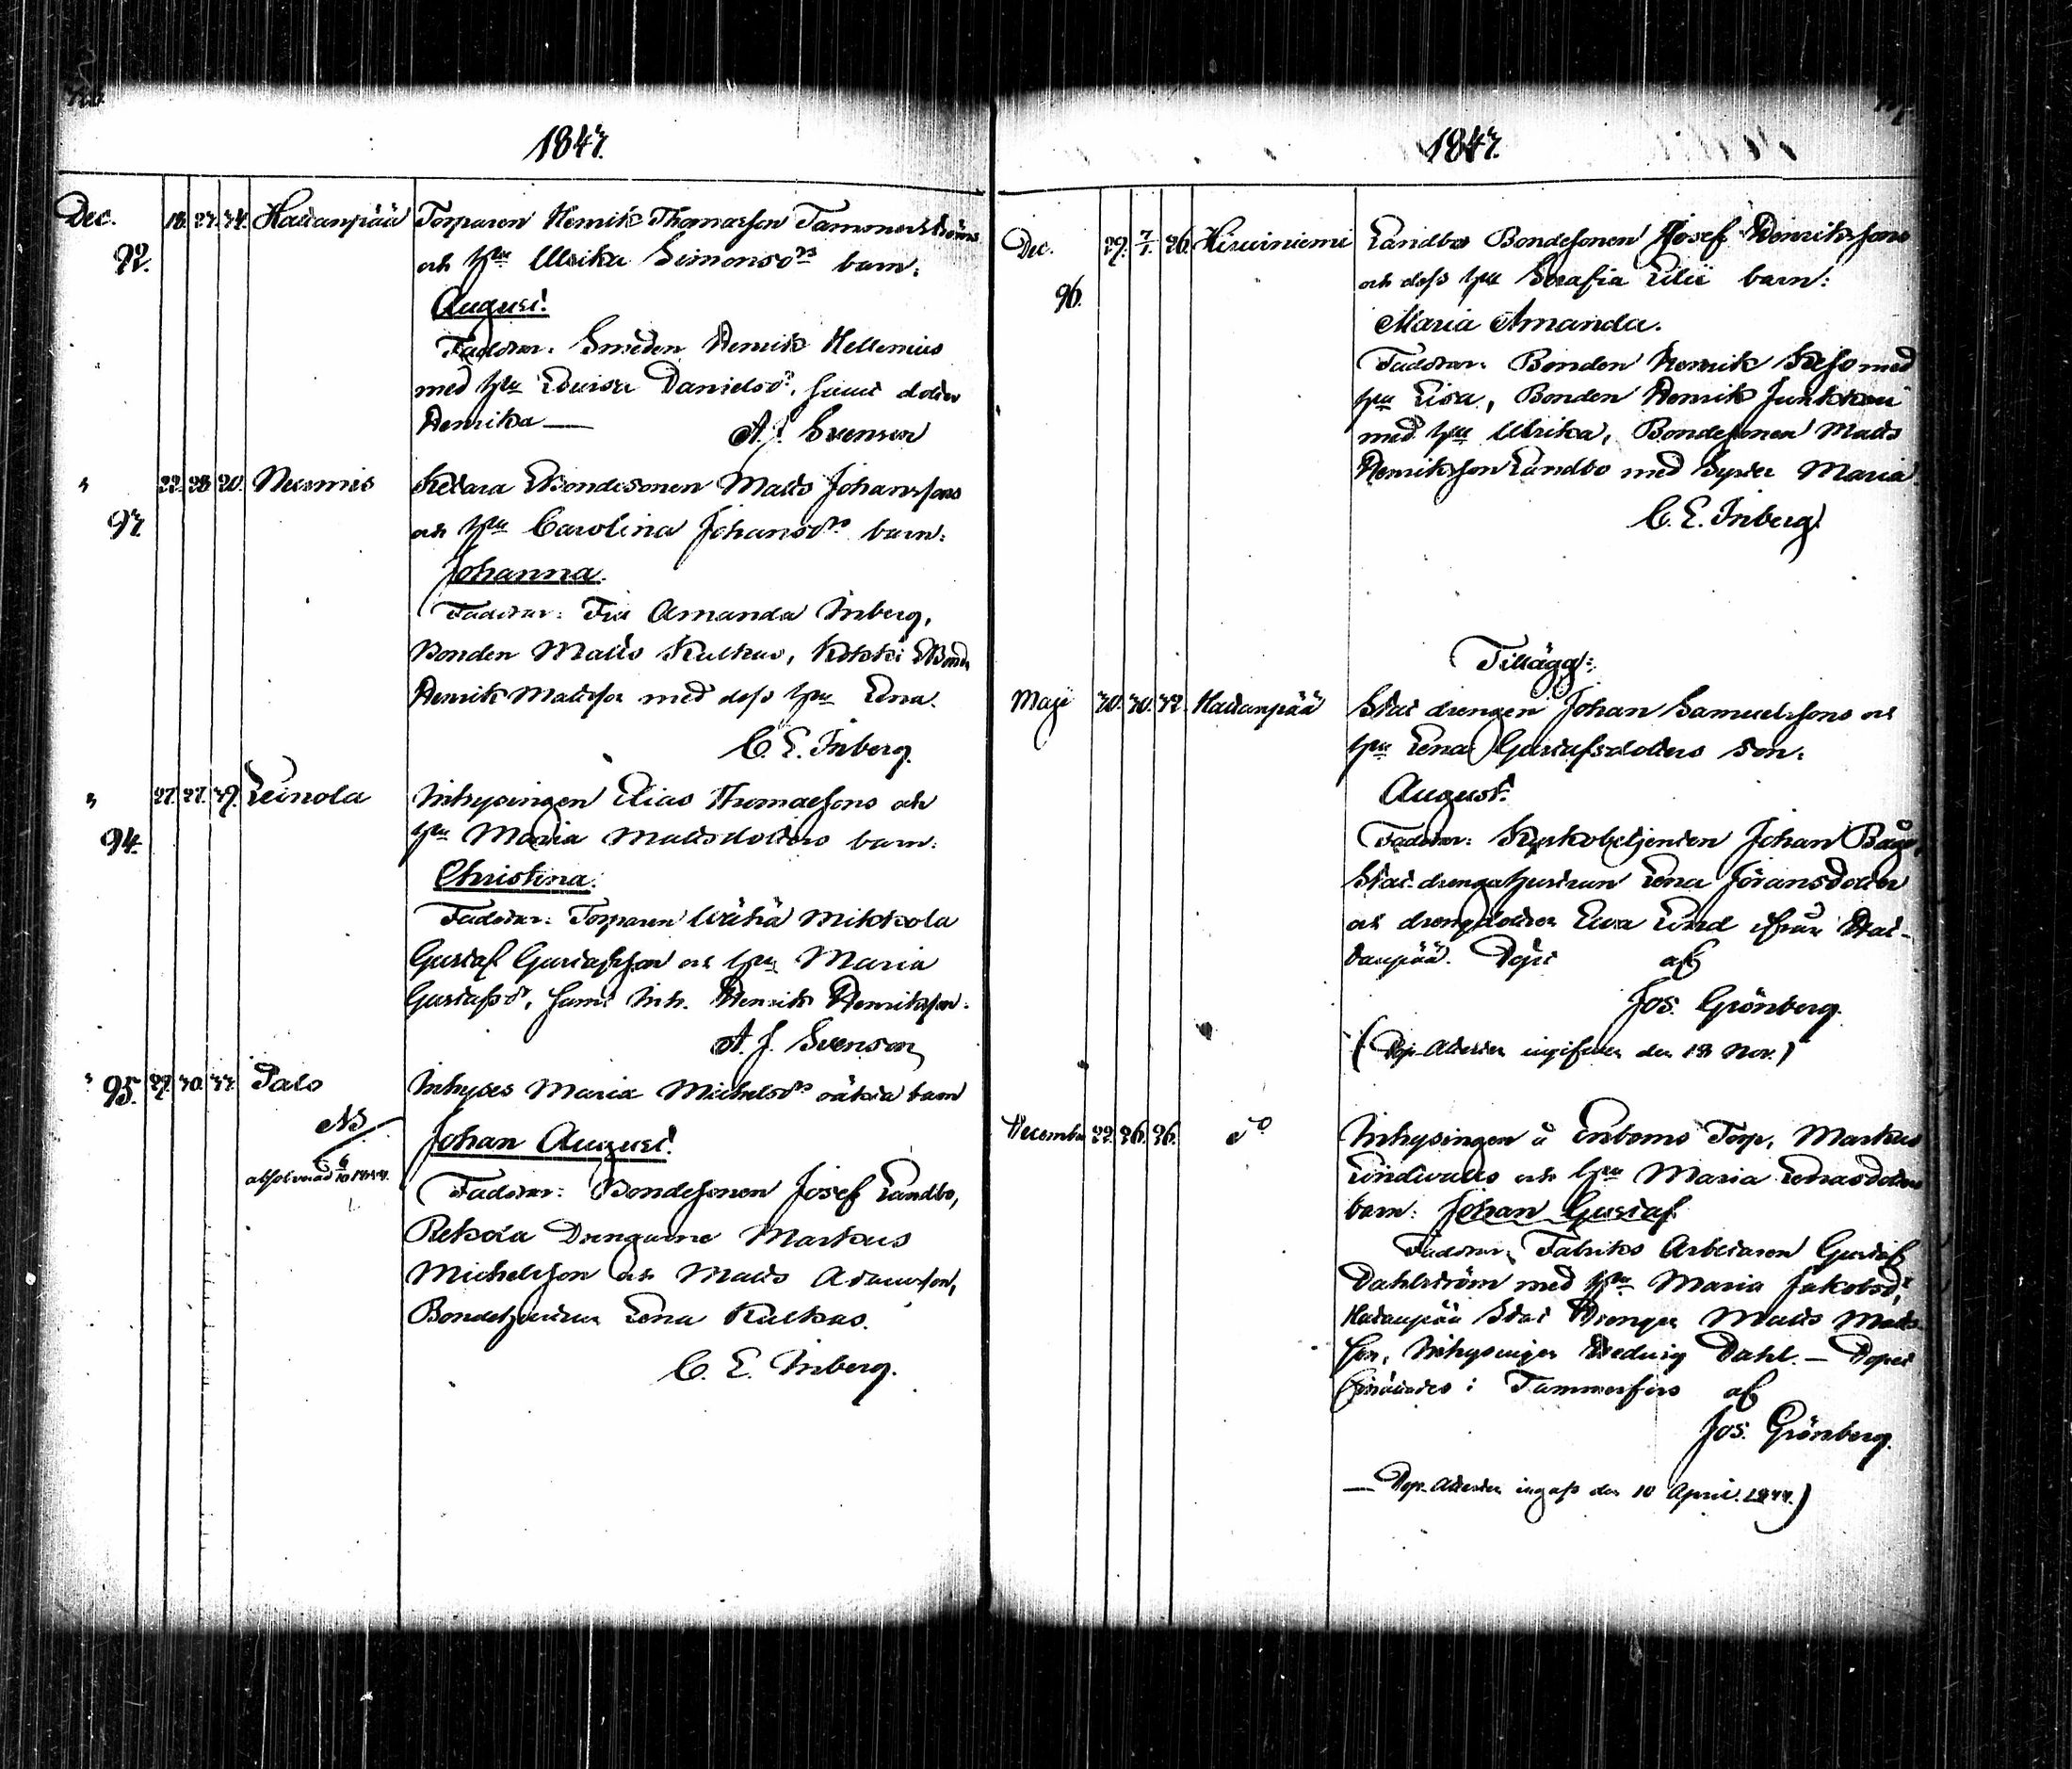 1843.
Dec. 18. 27. 34. Hattanpää Torparen Henrik Thomasson Tammerströms
92. och hu Ulrika Simonsdrs barn:
August.
Faddrar: Smeden Henrik Hellenius
med hu Lovisa Danielsdr, samt dotter
Henrika —
A. J. Svenson
" 22. 28. 20. Nurmis Bondesonen Matts Johanssons
93. och hu Carolina Johansdrs barn:
Johanna.
Faddrar: Amanda Inberg,
Bonden Matts Kulkas,
Henrik Mattsson med dess hu Lena.
C. E. Inberg.
" 27. 27. 39. Leinola Inhysingen Elias Thomassons och
94. hu Maria Mattsdotters barn:
Christina.
Faddrar: Torparen Wähä Mikkola
Gustaf Gustafsson och hu Maria
Gustafsdr, samt Inh. Henrik Henriksson.
A. J. Svenson
" 95. 29. 30. 33. Palo Inhyses Maria Michelsdrs oäkta barn
NB. Johan August.
Faddrar: Bondesonen Josef Landbo,
Drengarne Markus
Michelsson och Matts Adamsson,
Bondehustrun Lena Kulkas.
C. E. Inberg.
1843.
Dec. 29. 7/1. 26. Hirviniemi Landbo Bondesonen Josef Henrikssons
96. och dess hu Serafia barn:
Maria Amanda.
Faddrar: Bonden Henrik med
hu Lisa, Bonden Henrik Junkkari
med hu Ulrika, Bondesonen Matts
Henriksson Landbo med Syster Maria.
C. E. Inberg.
Tillägg:
Maji 30. 30. 32. Hattanpää Stat drengen Johan Samuelssons och
hu Lena Gustafsdotters son:
August.
Faddrar: Kyrkobetjenten Johan
Stat-drengahustrun Lena Göransdotter
och drengdottren Ewa Lind ifrån Hat-
tanpää. Döpt af
Jos. Grönberg.
(Dop-Attesten ingifven den 18 Nov.)
December 22. 26. 26. do Inhysingen å Enboms Torp, Markus
Lindwalls och hu Maria Lenasdotters
barn: Johan Gustaf.
Faddrar: Fabriks Arbetaren Gustaf
Dahlström med hu Maria Jakobsdr,
Hattanpää Stat Drengen Matts Matts-
son, Inhysingen Hedvig Dahl. — Dopet
förrättades i Tammerfors af
Jos. Grönberg.
— Dop-Attesten ingafs den 10 April. 1844.)